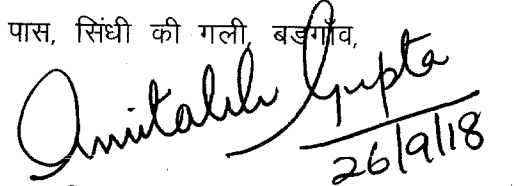 पास, सिंधी की गली, बड़गाँव,
Amitabh Gupta
26/9/18